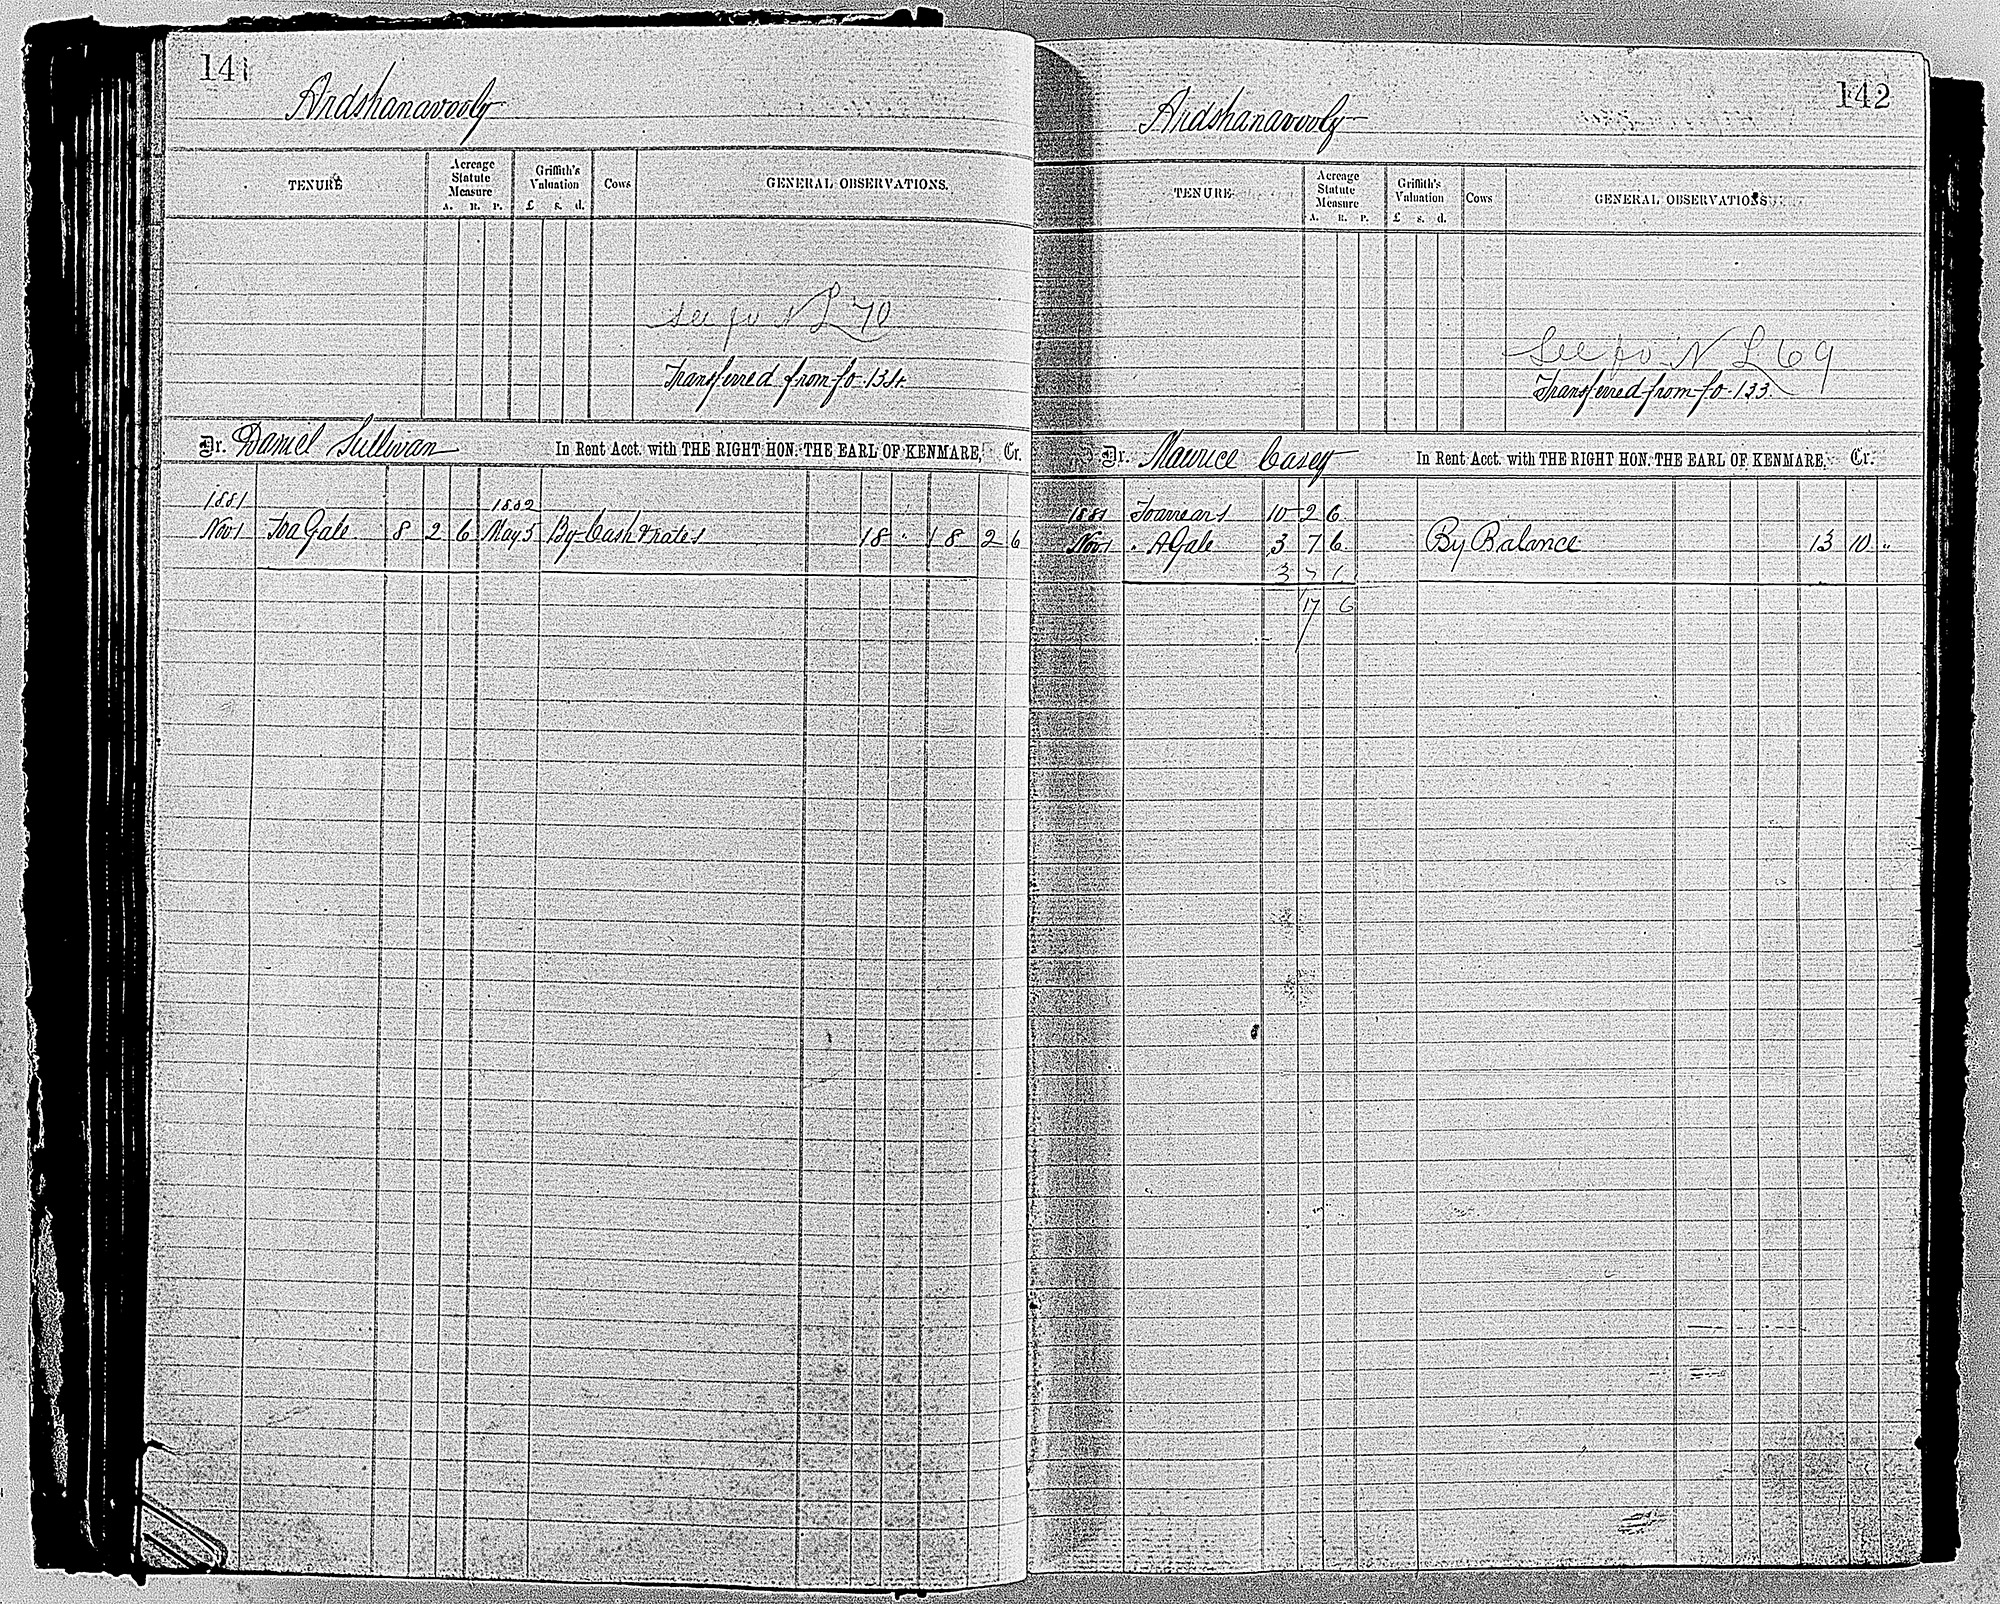 141
Ardshanavooly
TENURE
Acreage Statute Measure
A. R. P.
Griffith's Valuation
£ s. d.
Cows
GENERAL OBSERVATIONS.
See fo N L 70
Transferred from fo 134
Dr. Daniel Sullivan In Rent Acct. with THE RIGHT HON. THE EARL OF KENMARE, Cr.
1881 1882
Nov 1 To a Gale 8 2 6 May 5 By Cash & rates 18 " 8 2 6
142
Ardshanavooly
TENURE
Acreage Statute Measure
A. R. P.
Griffith's Valuation
£ s. d.
Cows
GENERAL OBSERVATIONS
See fo N L 69
Transferred from fo 133.
Dr. Maurice Casey In Rent Acct. with THE RIGHT HON. THE EARL OF KENMARE, Cr.
1881 To arrears 10 2 6
Nov 1 " A Gale 3 7 6 By Balance 13 10 "
3 7 6
17 6